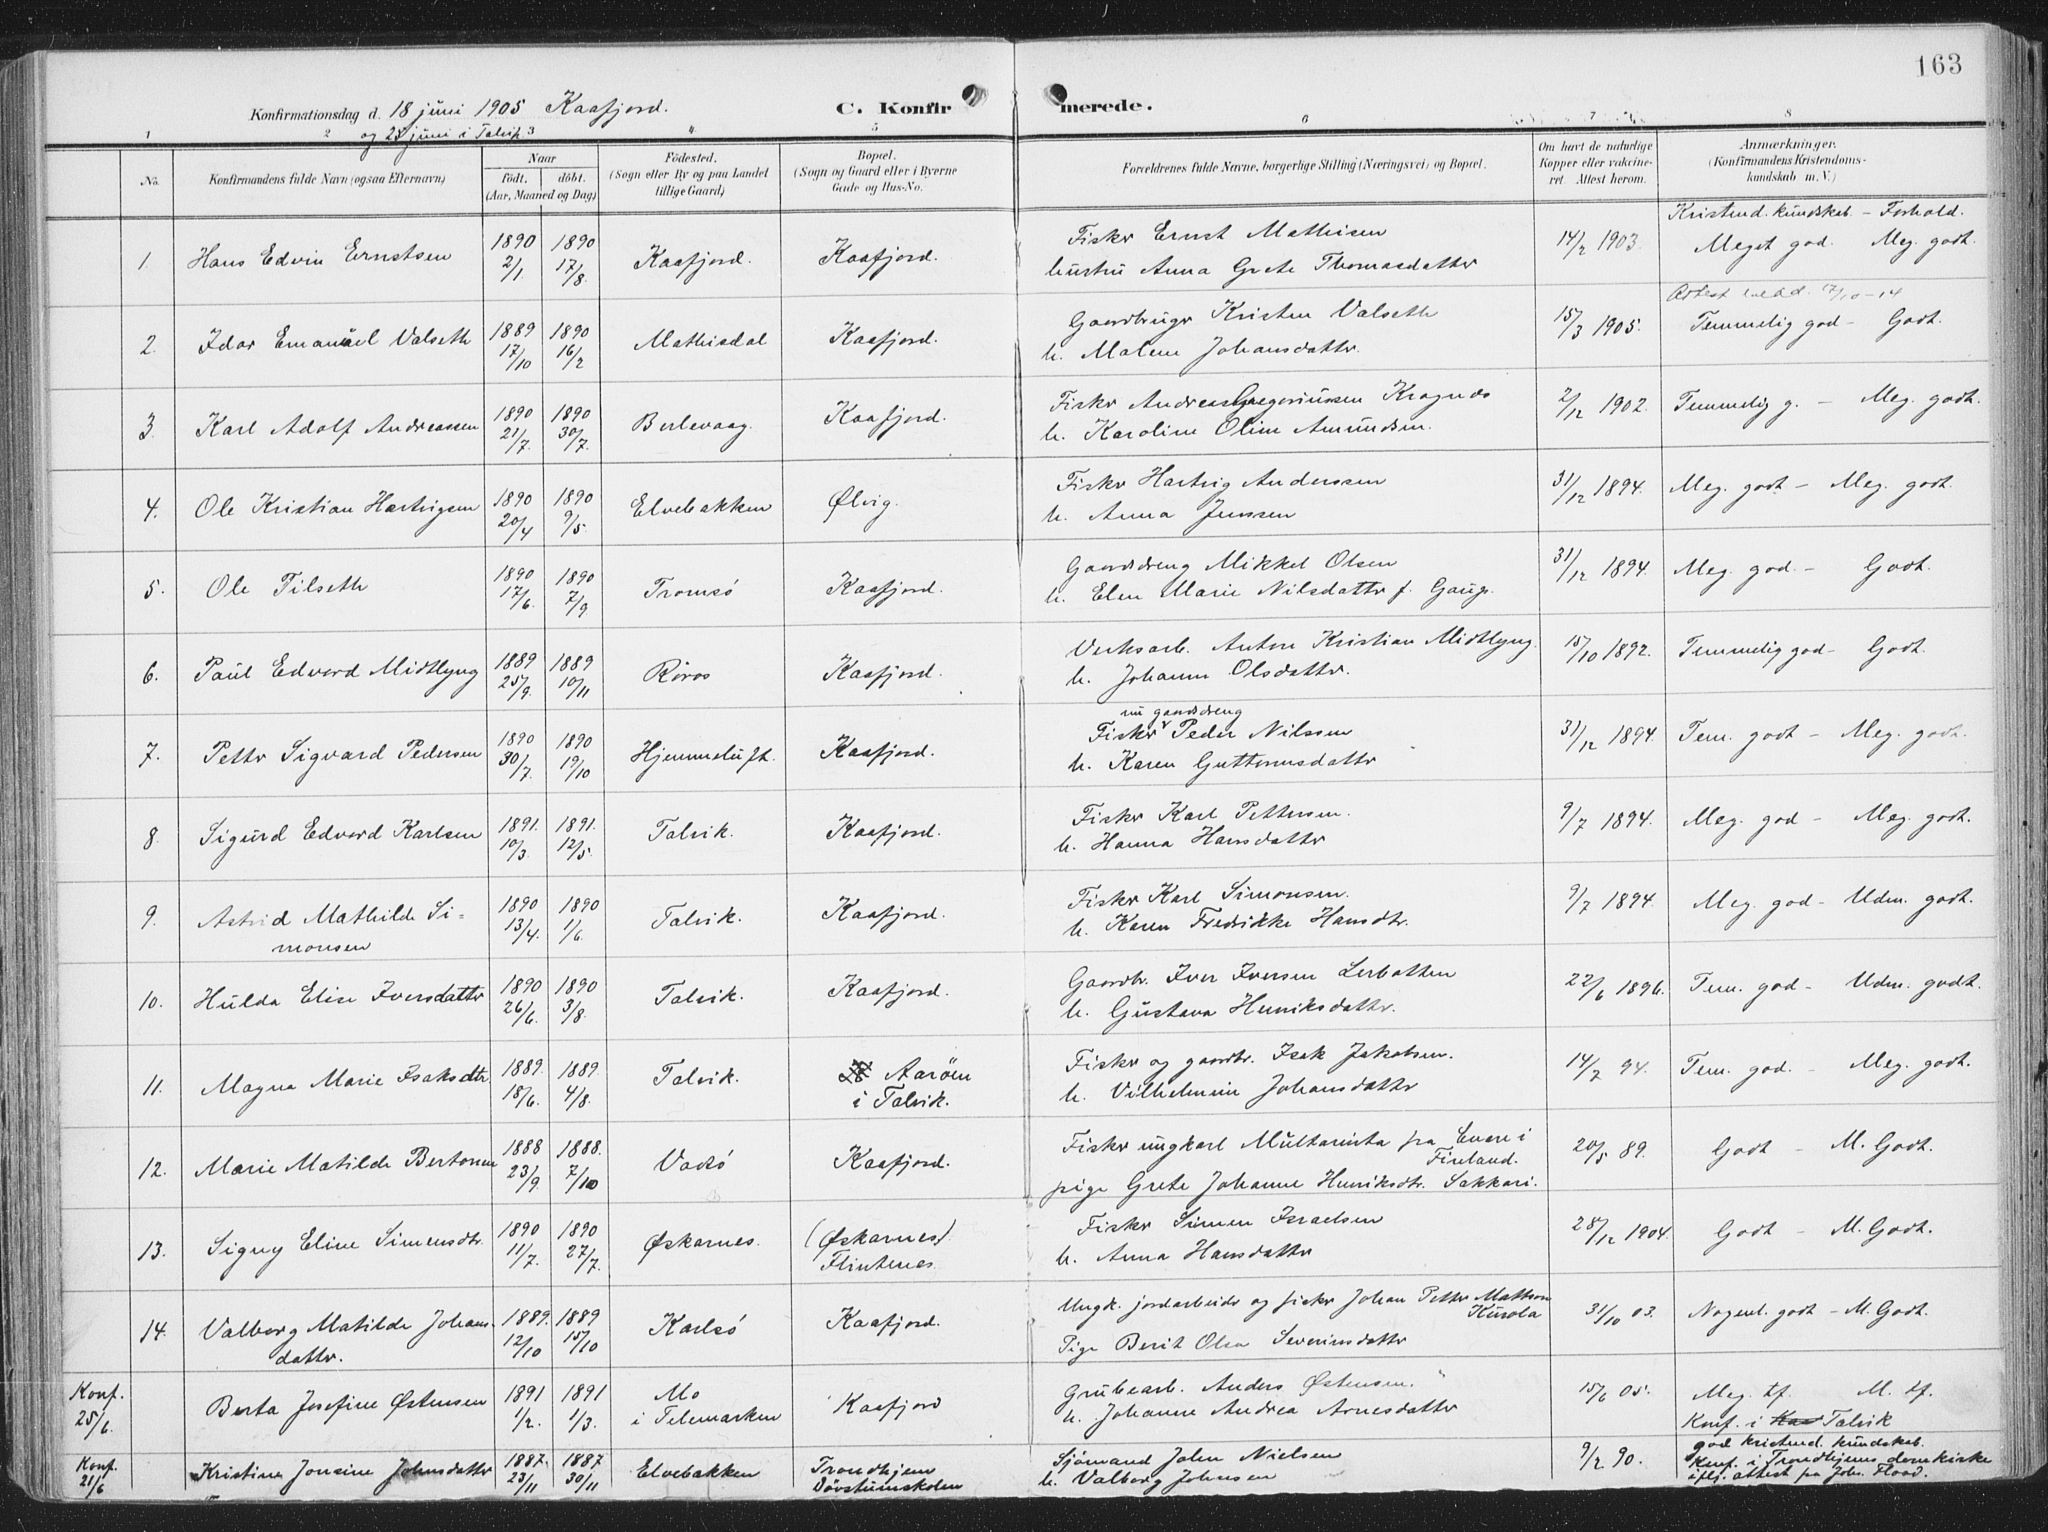 163
Konfirmationsdag d. 18 juni 1905 Kaafjord. C. Konfirmerede.
og 25 juni i Talvik
1 2 3 4 5 6 7 8
No. Konfirmandens fulde Navn (ogsaa Efternavn) Naar født, døbt. (Aar, Maaned og Dag) Fødested. (Sogn eller By og paa Landet tillige Gaard) Bopæl. (Sogn og Gaard eller i Byerne Gade og Hus-No. Forældrenes fulde Navne, borgerlige Stilling (Næringsvei) og Bopæl. Om havt de naturlige Kopper eller vaccineret. Attest herom. Anmærkninger. (Konfirmandens Kristendomskundskab m. V.)
Kristend. kundskab - Forhold.
1. Hans Edvin Ernstsen 1890 2/1 1890 17/8. Kaafjord. Kaafjord. Fisker Ernst Mathisen 14/2 1903. Meget god. Meg. godt.
hustru Anna Grete Thomasdatter
Attest 17/10-14
2. Idar Emanuel Valseth 1889 17/10 1890 16/2 Mathisdal Kaafjord. Gaardbruger Kristen Valseth 15/3 1905. Temmelig god - Godt.
h. Malene Johansdatter.
3. Karl Adolf Andreassen 1890 21/7. 1890 30/7. Berlevaag. Kaafjord. Fisker Andreas Gregoriussen Kragnæs 2/12 1902. Temmelig g. - Meg. godt.
h. Karoline Oline Amundsen.
4. Ole Kristian Hartvigsen 1890 20/4 1890 9/5. Elvebakken Ølvig. Fisker Hartvig Anderssen 31/12 1894. Meg. godt - Meg. godt.
h. Anna Jenssen
5. Ole Tilseth 1890 17/6. 1890 7/9 Tromsö Kaafjord. Gaardsdreng Mikkel Olsen 31/12 1894. Meg. god. - Godt.
h. Elen Marie Nilsdatter f.
6. Paul Edvard Midtlyng 1889 25/9. 1889 10/11 Röros Kaafjord. Verksarb. Anton Kristian Midtlyng. 15/10 1892. Temmelig god - Godt.
h. Johanne Olsdatter.
nu gaardsdreng
7. Petter Sigvard Pedersen 1890 30/7. 1890 19/10 Hjemmeluft. Kaafjord. Fisker Peder Nilssen 31/12 1894. Tem. godt - Meg. godt.
h. Karen Guttormsdatter
8. Sigurd Edvard Karlsen 1891. 10/3. 1891. 12/5. Talvik. Kaafjord. Fisker Karl Pettersen. 9/7 1894. Meg. god - Meg. godt.
h. Hanna Hansdatter
9. Astrid Mathilde Si- 1890 13/4. 1890 1/6. Talvik. Kaafjord. Fisker Karl Simonsen. 9/7 1894. Meg. god - Udm. godt.
monsen h. Karen Fredrikke Hansdtr.
10. Hulda Elise Iversdatter 1890 26/6. 1890 3/8. Talvik. Kaafjord. Gaardbr. Iver Iversen Lerbotten 22/6 1896. Tem. god - Udm. godt.
h. Gustava Henriksdatter.
11. Magna Marie Isaksdtr 1889. 18/6. 1889. 4/8. Talvik. Aaröen Fisker og gaardbr. Isak Jakobsen. 14/7 94. Tem. god. - Meg. godt.
i Talvik. h. Vilhelmine Johansdatter
12. Marie Matilde Bertonen 1888 23/9. 1888. 7/10 Vadsö Kaafjord. Fisker ungkarl Multaniita fra Enare i 20/5 89. Godt - M. Godt.
Finland.
pige Grete Johanne Henriksdtr. Sakkari.
13. Signy Eline Simensdtr. 1890 11/7. 1890 27/7. Øskarnes. (Øskarnes) Fisker Simen Israelsen 28/12 1904. Godt - M. Godt.
Flintenes. h. Anna Hansdatter
14. Valborg Matilde Johans- 1889. 12/10 1889 15/10 Karlsö Kaafjord. Ungk. jordarbeider og fisker Johan Petter Mattson 31/10 03. Nogenl. godt - M. Godt.
Kurola
datter. Pige Berit Olsa Severinsdatter
Konf. 25/6. Berta Josefine Østensen 1891 1/2. 1891 1/3. Mo i Telemarken Kaafjord Grubearb. Anders Østensen. 15/6 05. Meg. tf. M. tf.
h. Johanne Andrea Arnesdatter Konf. i Kaa Talvik
Konf. 21/6 Kristine Jonsine Johnsdatter 1887. 23/11 1887 30/11 Elvebakken Trondhjem Sjömand John Nielsen 9/2 90. god kristend. kundskab.
Døvstumskolen h. Valborg Johnsen Konf. i Trondhjems domkirke
ifl. attest fra Joh. Flood.